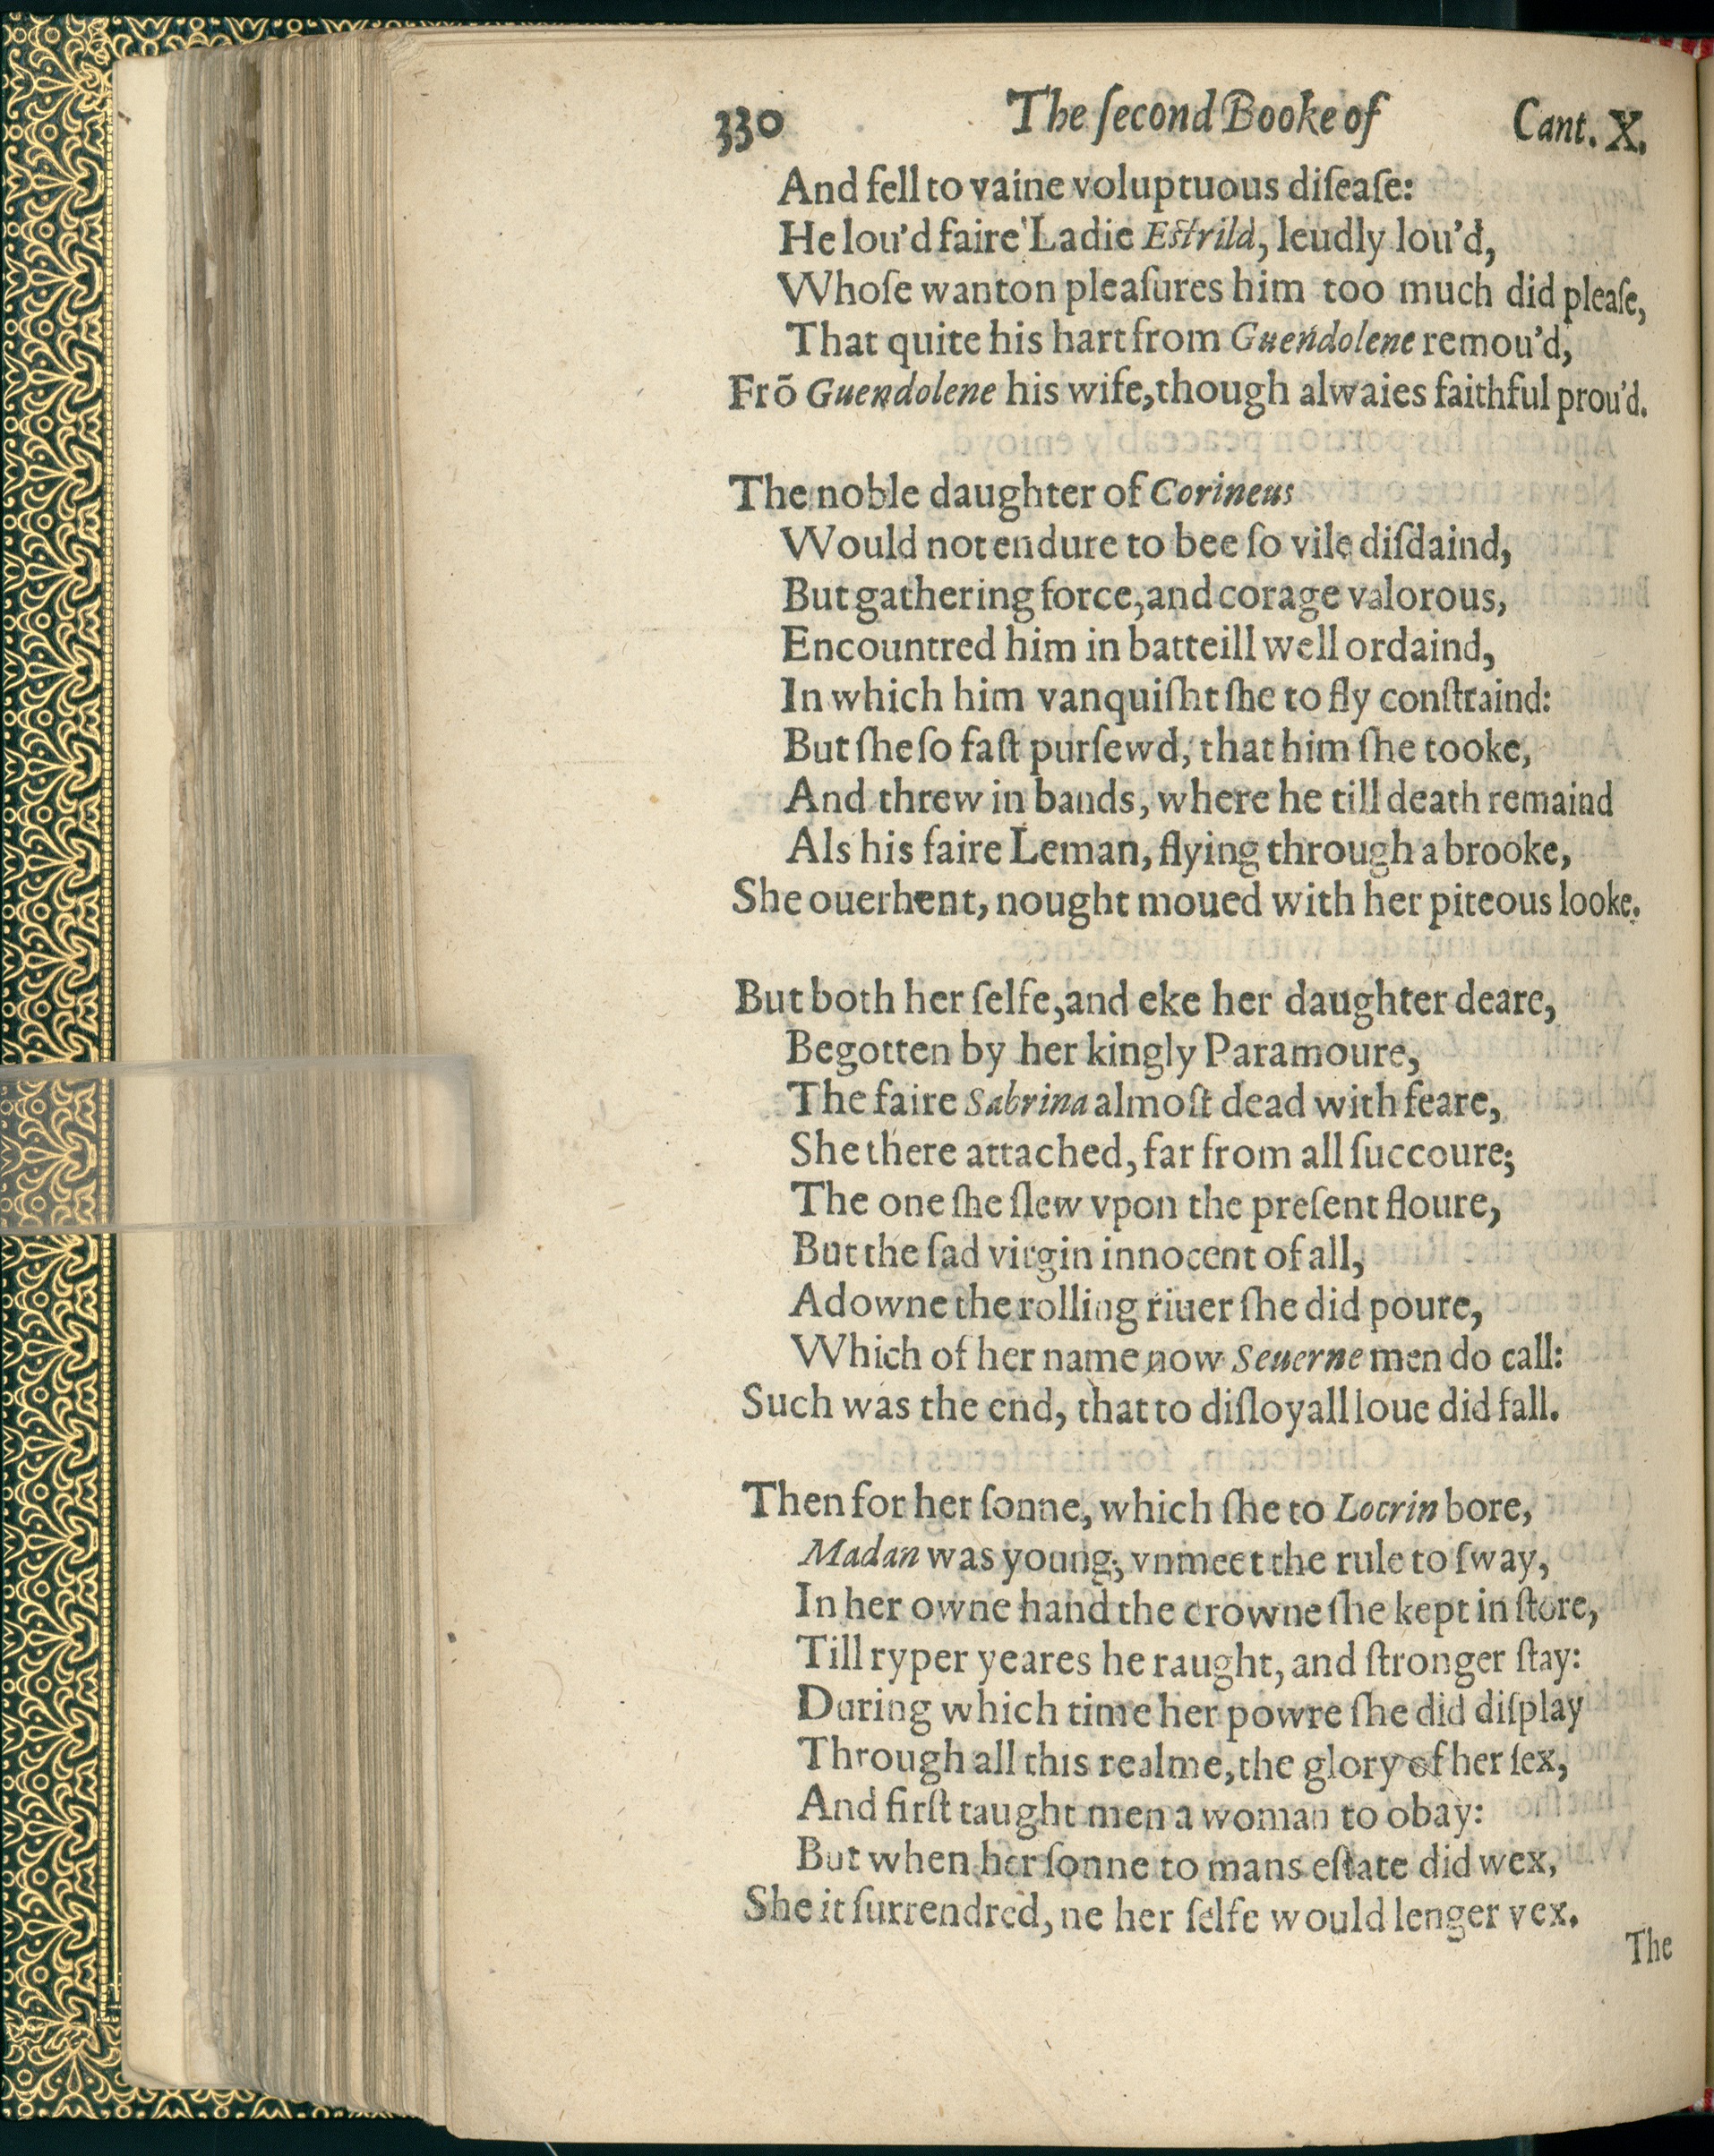 330 The ſecond Booke of Cant. X.
And fell to vaine voluptuous diſeaſe:
He lou'd faire Ladie Eſtrild, leudly lou'd,
Whoſe wanton pleaſures him too much did pleaſe,
That quite his hart from Guendolene remou'd,
Frõ Guendolene his wife, though alwaies faithful prou'd.
The noble daughter of Corineus
Would not endure to bee ſo vile diſdaind,
But gathering force, and corage valorous,
Encountred him in batteill well ordaind,
In which him vanquiſht ſhe to fly conſtraind:
But ſhe ſo faſt purſewd, that him ſhe tooke,
And threw in bands, where he till death remaind
Als his faire Leman, flying through a brooke,
She ouerhent, nought moued with her piteous looke.
But both her ſelfe, and eke her daughter deare,
Begotten by her kingly Paramoure,
The faire Sabrina almoſt dead with feare,
She there attached, far from all ſuccoure;
The one ſhe ſlew vpon the preſent floure,
But the ſad virgin innocent of all,
Adowne the rolling riuer ſhe did poure,
Which of her name now Seuerne men do call:
Such was the end, that to diſloyall loue did fall.
Then for her ſonne, which ſhe to Locrin bore,
Madan was young, vnmeet the rule to ſway,
In her owne hand the crowne ſhe kept in ſtore,
Till ryper yeares he raught, and ſtronger ſtay:
During which time her powre ſhe did diſplay
Through all this realme, the glory of her ſex,
And firſt taught men a woman to obay:
But when her ſonne to mans eſtate did wex,
She it ſurrendred, ne her ſelfe would lenger vex.
The